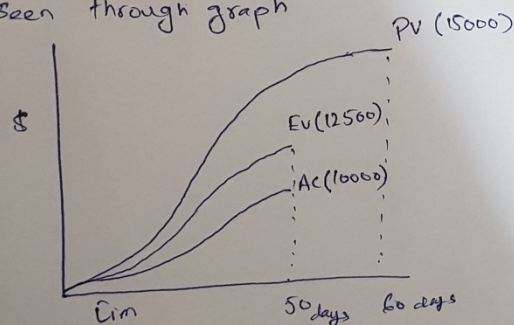 Seen through graph
PV (15000)
$
EV(12500)
AC(10000)
Tim
50 days 60 days